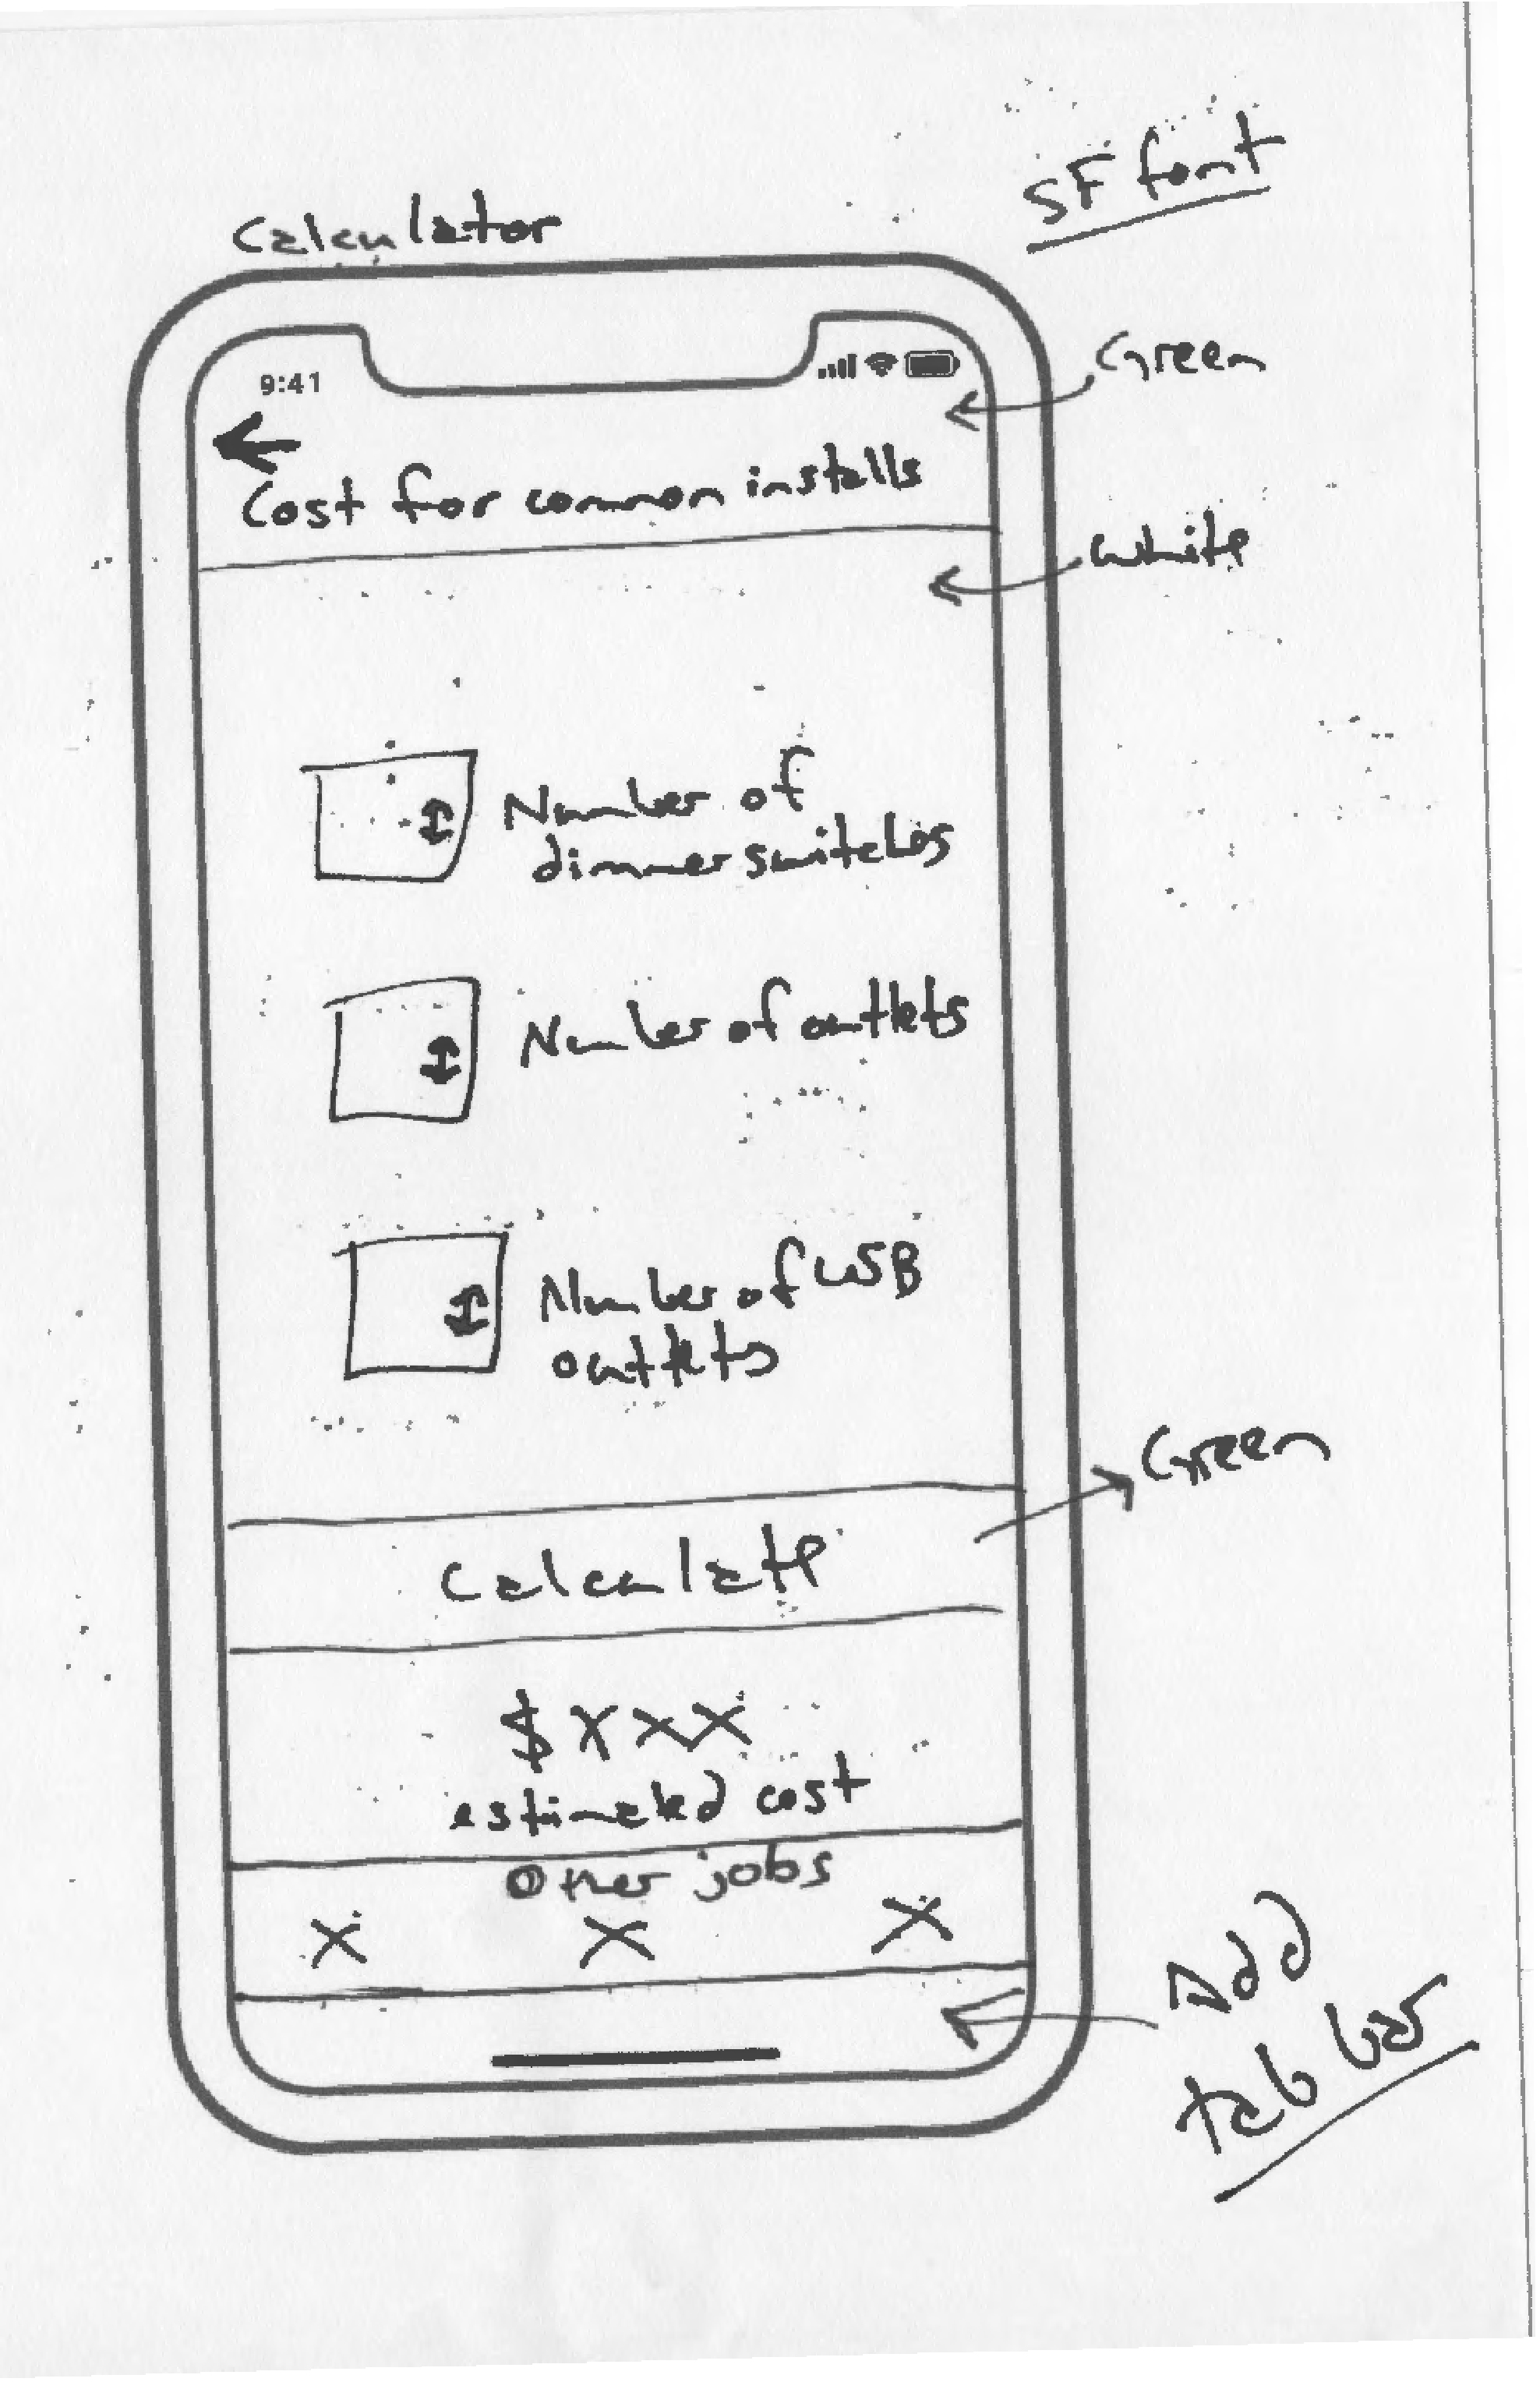 SF font
Calculator
Green
9:41
Cost for common installs
White
Number of
dimmer switches
Number of outlets
Number of USB
outlets
Green
Calculate
$ XXX
estimated cost
Other jobs
X X X
Add
tab bar